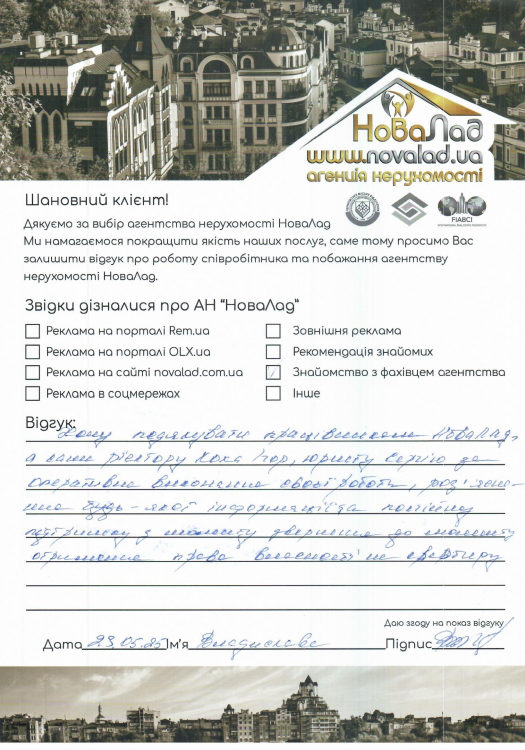 НоваЛад
www.novalad.ua
агенція нерухомості
Шановний клієнт!
FIABCI
Дякуємо за вибір агентства нерухомості НоваЛад
Ми намагаємося покращити якість наших послуг, саме тому просимо Вас
залишити відгук про роботу співробітника та побажання агентству
нерухомості НоваЛад.
Звідки дізналися про АН “НоваЛад”
Реклама на порталі Rem.ua
Реклама на порталі OLX.ua
Реклама на сайті novalad.com.ua
Реклама в соцмережах
Зовнішня реклама
Рекомендація знайомих
Знайомство з фахівцем агентства
Інше
Відгук:
Хочу подякувати працівникам НоваЛад,
а саме рієлтору Кока Ігор, юристу Сергію за
оперативне виконання своєї роботи, роз'ясне-
ння будь-якої інформації та постійну
підтримку з моменту звернення до моменту
отримання права власності на квартиру
Даю згоду на показ відгуку
Дата 23.05.25 Ім'я Владислава Підпис